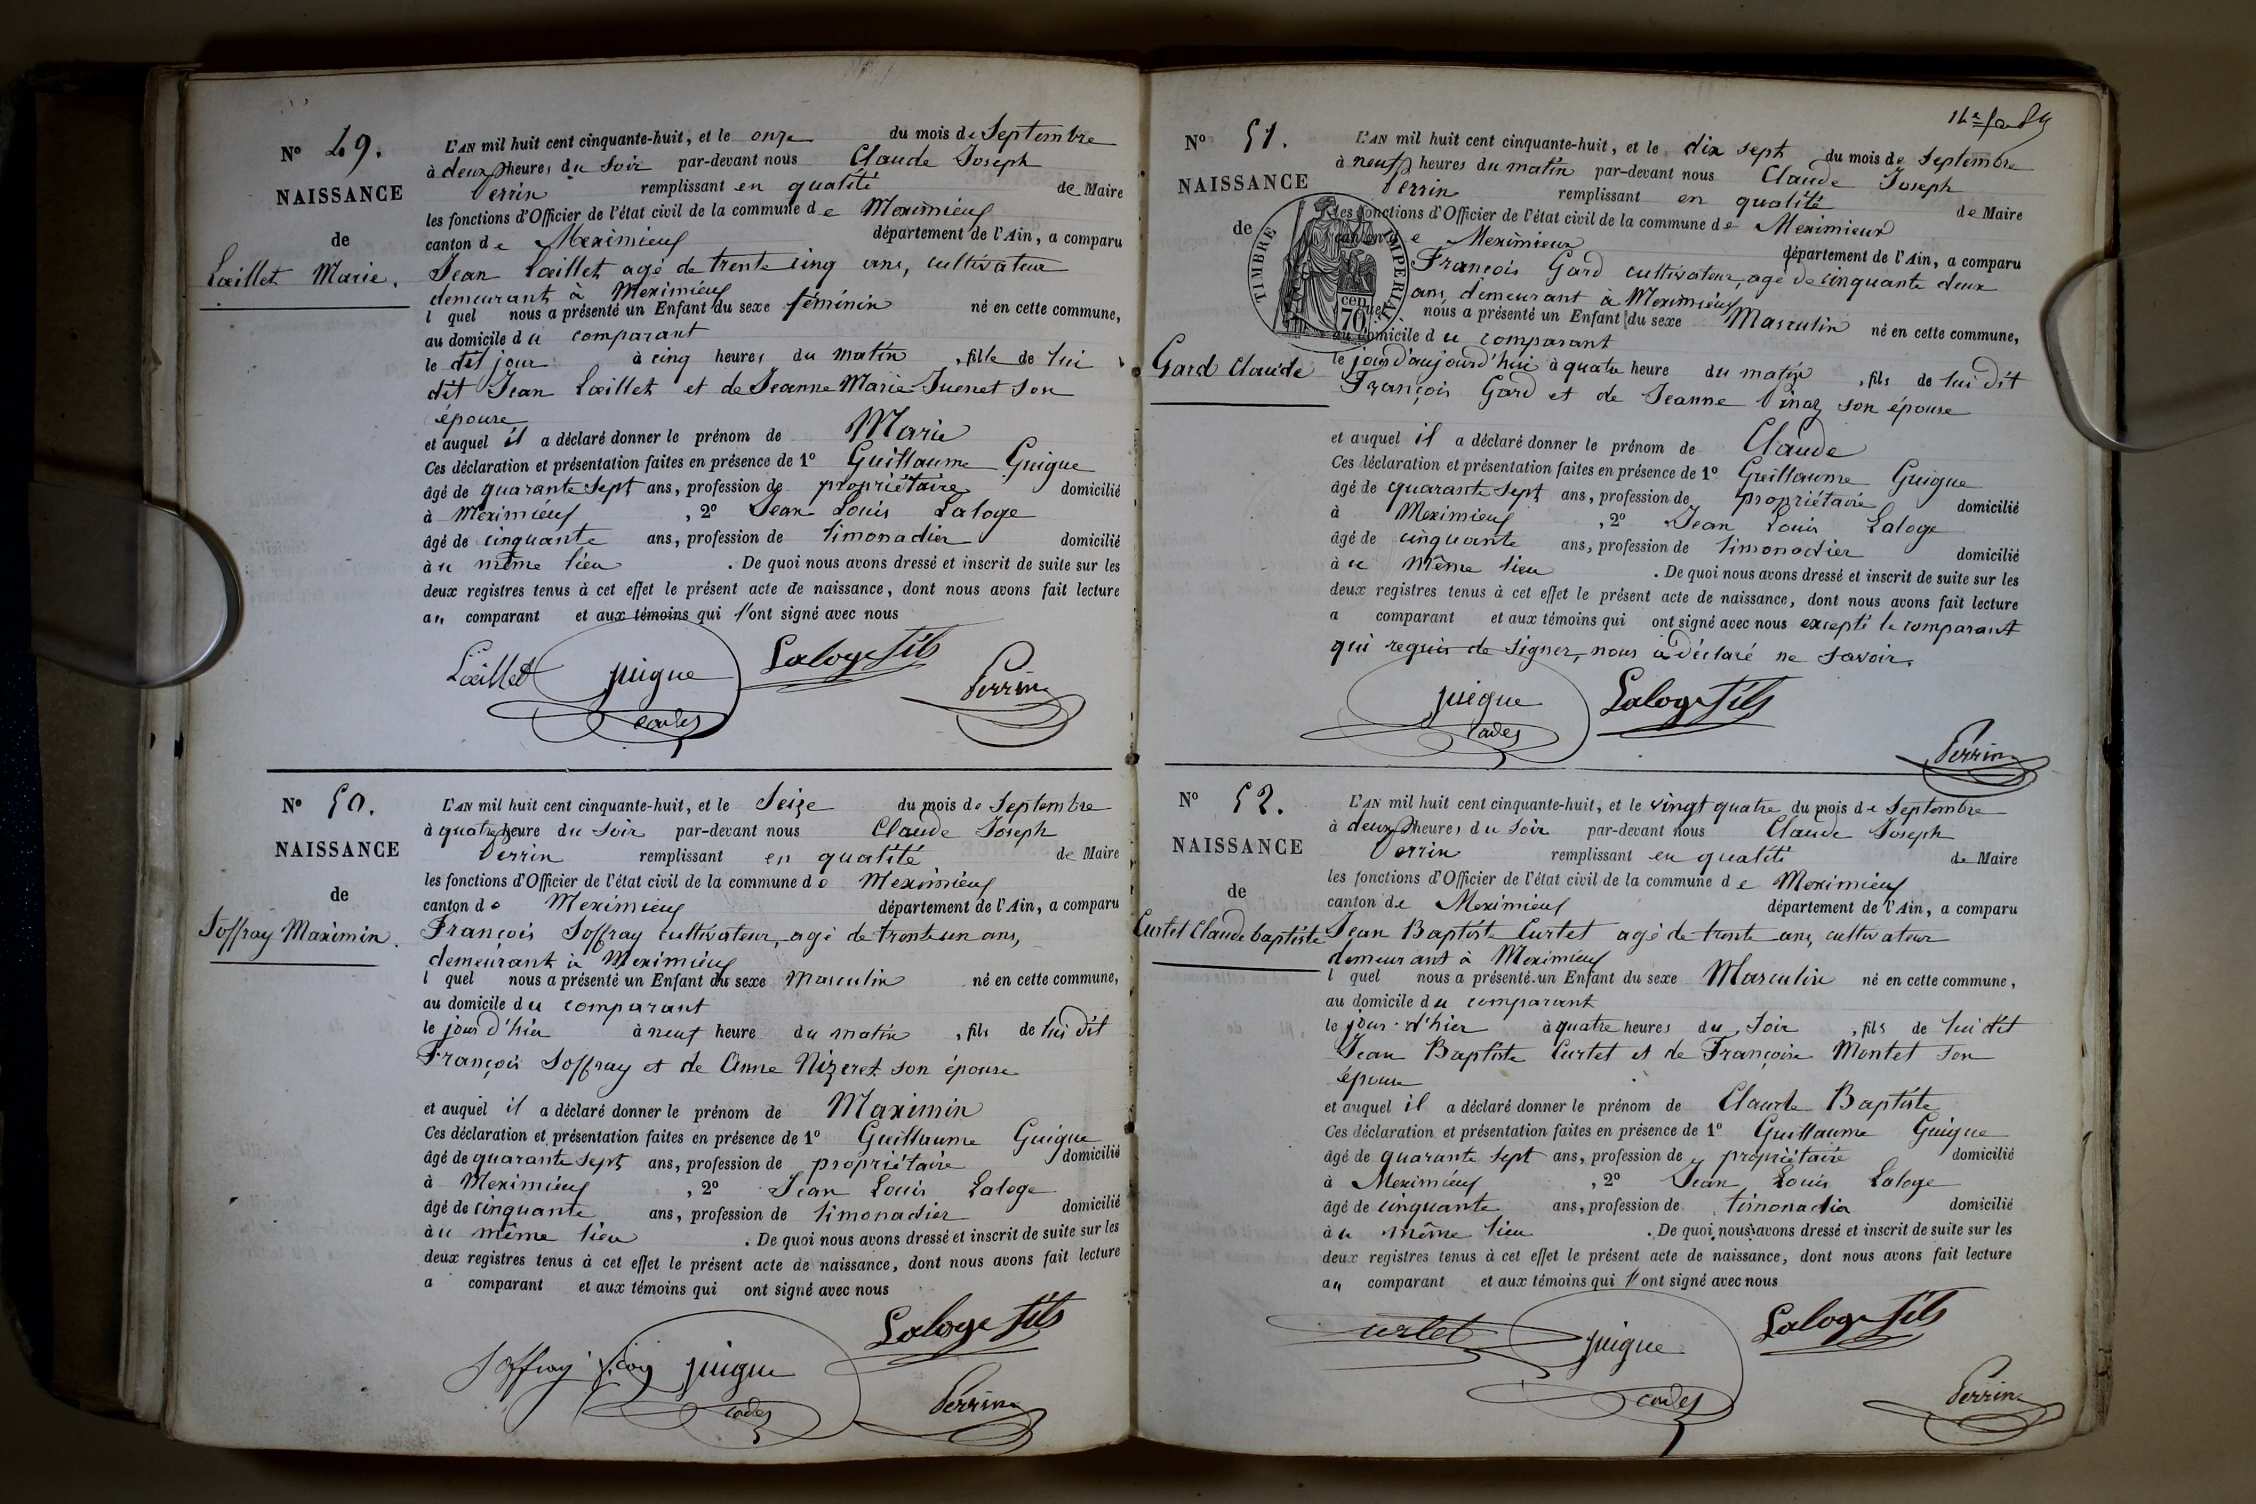 N° 49.
NAISSANCE
de
Laillet Marie.
L'AN mil huit cent cinquante-huit, et le onze du mois de Septembre
à deux heures du Soir par-devant nous Claude Joseph
Perrin remplissant en qualité de Maire
les fonctions d'Officier de l'état civil de la commune de Meximieux
canton de Meximieux département de l'Ain, a comparu
Jean Laillet agé de trente cinq ans, cultivateur
demeurant à Meximieux
l quel nous a présenté un Enfant du sexe féminin né en cette commune,
au domicile du comparant
le dit jour à cinq heures du matin , fille de lui
dit Jean Laillet et de Jeanne Marie Juenet son
épouse
et auquel il a déclaré donner le prénom de Marie
Ces déclaration et présentation faites en présence de 1° Guillaume Guigue
âgé de quarante sept ans, profession de propriétaire domicilié
à Meximieux , 2° Jean Louis Laloge
âgé de cinquante ans, profession de limonadier domicilié
au même lieu . De quoi nous avons dressé et inscrit de suite sur les
deux registres tenus à cet effet le présent acte de naissance, dont nous avons fait lecture
au comparant et aux témoins qui l'ont signé avec nous
Laillet guigue Laloge fils Perrin
N° 50.
NAISSANCE
de
Soffray Maximin.
L'AN mil huit cent cinquante-huit, et le Seize du mois de Septembre
à quatre heure du Soir par-devant nous Claude Joseph
Perrin remplissant en qualité de Maire
les fonctions d'Officier de l'état civil de la commune de Meximieux
canton de Meximieux département de l'Ain, a comparu
François Soffray cultivateur, agé de trente un ans,
demeurant à Meximieux
l quel nous a présenté un Enfant du sexe Masculin né en cette commune,
au domicile du comparant
le jour d'hier à neuf heure du matin , fils de lui dit
François Soffray et de Anne Nizeret son épouse
et auquel il a déclaré donner le prénom de Maximin
Ces déclaration et présentation faites en présence de 1° Guillaume Guigue
âgé de quarante sept ans, profession de propriétaire domicilié
à Meximieux , 2° Jean Louis Laloge
âgé de cinquante ans, profession de limonadier domicilié
au même lieu . De quoi nous avons dressé et inscrit de suite sur les
deux registres tenus à cet effet le présent acte de naissance, dont nous avons fait lecture
a comparant et aux témoins qui ont signé avec nous
Soffray guigue Laloge fils Perrin
N° 51.
NAISSANCE
de
TIMBRE IMPERIAL
cen
70
Gard Claude
L'AN mil huit cent cinquante-huit, et le dix sept du mois de Septembre
à neuf heures du matin par-devant nous Claude Joseph
Perrin remplissant en qualité de Maire
les fonctions d'Officier de l'état civil de la commune de Meximieux
canton de Meximieux département de l'Ain, a comparu
François Gard cultivateur, agé de cinquante deux
ans, demeurant à Meximieux
quel nous a présenté un Enfant du sexe Masculin né en cette commune,
au domicile du comparant
le jour d'aujourd'hui à quatre heure du matin , fils de lui dit
François Gard et de Jeanne Pinaz son épouse
et auquel il a déclaré donner le prénom de Claude
Ces déclaration et présentation faites en présence de 1° Guillaume Guigue
âgé de quarante sept ans, profession de propriétaire domicilié
à Meximieux , 2° Jean Louis Laloge
âgé de cinquante ans, profession de limonadier domicilié
au même lieu . De quoi nous avons dressé et inscrit de suite sur les
deux registres tenus à cet effet le présent acte de naissance, dont nous avons fait lecture
a comparant et aux témoins qui ont signé avec nous excepté le comparant
qui requis de signer, nous a déclaré ne savoir.
guigue Laloge fils
Perrin
N° 52.
NAISSANCE
de
Curtet Claude baptiste
L'AN mil huit cent cinquante-huit, et le vingt quatre du mois de Septembre
à deux heures du Soir par-devant nous Claude Joseph
Perrin remplissant en qualité de Maire
les fonctions d'Officier de l'état civil de la commune de Meximieux
canton de Meximieux département de l'Ain, a comparu
Jean Baptiste Curtet agé de trente ans, cultivateur
demeurant à Meximieux
l quel nous a présenté un Enfant du sexe Masculin né en cette commune,
au domicile du comparant
le jour d'hier à quatre heures du Soir , fils de lui dit
Jean Baptiste Curtet et de Françoise Montet son
épouse
et auquel il a déclaré donner le prénom de Claude Baptiste
Ces déclaration et présentation faites en présence de 1° Guillaume Guigue
âgé de quarante sept ans, profession de propriétaire domicilié
à Meximieux , 2° Jean Louis Laloge
âgé de cinquante ans, profession de limonadier domicilié
au même lieu . De quoi nous avons dressé et inscrit de suite sur les
deux registres tenus à cet effet le présent acte de naissance, dont nous avons fait lecture
au comparant et aux témoins qui l'ont signé avec nous
Curtet guigue Laloge fils
Perrin